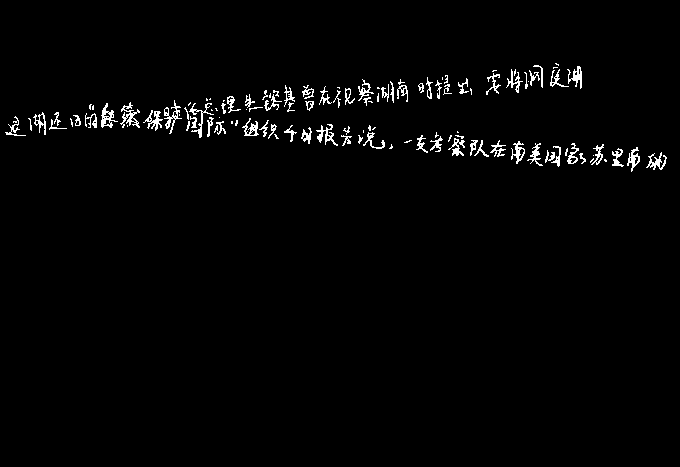 总理朱镕基曾在视察湖南时提出 要将洞庭湖
保护国际”组织 日报告说,一支考察队在南美国家苏里南的